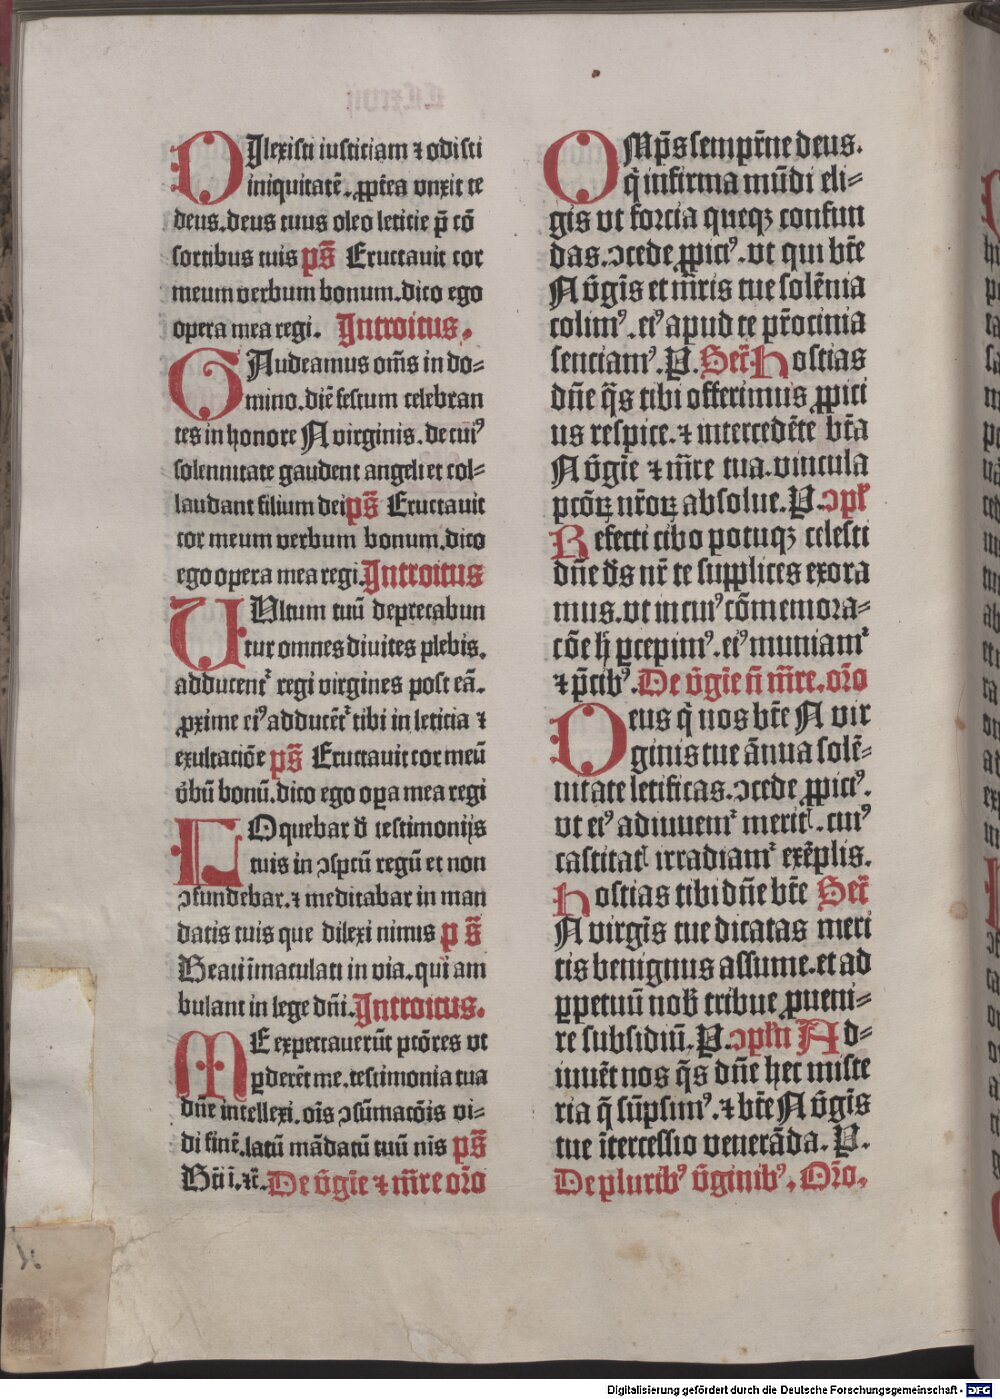 DJlexisti iusticiam ⁊ odisti
iniquitatē. ꝓp̄tea vnxit te
deus. deus tuus oleo leticie p̄ cō
sortibus tuis ps̄ Eructauit cor
meum verbum bonum. dico ego
opera mea regi. Introitus.
GAudeamus om̄s in do⸗
mino. diē festum celebran
tes in honore N virginis. de cuiꝰ
solennitate gaudent angeli et col⸗
laudant filium dei ps̄ Eructauit
cor meum verbum bonum. dico
ego opera mea regi. Introitus
VUltum tuū deprecabun
tur omnes diuites plebis.
adducent᷑ regi virgines post eā.
ꝓxime eiꝰ adducēt᷑ tibi in leticia ⁊
exultatiōe ps̄ Eructauit cor meū
v̄bū bonū. dico ego oꝑa mea regi
LOquebar d̄ testimonijs
tuis in ↄspcū regū et non
ↄfundebar. ⁊ meditabar in man
datis tuis que dilexi nimis p s̄
Beati īmaculati in via. qui am
bulant in lege dn̄i. Introitus.
ME expectauerūt pctōres vt
ꝑderēt me. testimonia tua
dn̄e intellexi. oīs ↄsūmatōis vi⸗
di finē. latū mādatū tuū nis ps̄
Bt̄i ī. ꝛc̄. De v̄gīe ⁊ mr̄e or̄o
OMp̄s sempr̄ne deus.
q̄ infirma mūdi eli⸗
gis vt forcia queqꝫ confun
das. ↄcede ꝓpiciꝰ. vt qui bt̄e
N v̄gīs et mr̄is tue solēnia
colimꝰ. eiꝰ apud te pr̄ocinia
senciamꝰ. P. Secr̄ Hostias
dn̄e q̄s tibi offerimus ꝓpici
us respice. ⁊ intercedēte bt̄a
N v̄gīe ⁊ mr̄e tua. vincula
pctōꝝ nr̄oꝝ absolue. P. ↄpl̄
Refecti cibo potuqꝫ celesti
dn̄e ds̄ nr̄ te supplices exora
mus. vt in cuiꝰ cōmemora⸗
cōe h̄ ꝑcepimꝰ. eiꝰ muniam᷑
⁊ p̄cibꝰ. De v̄gīe n̄ mr̄e. or̄o
Deus q̄ nos bt̄e N vir
ginis tue ānua solē⸗
nitate letificas. ↄcede ꝓpiciꝰ.
vt eiꝰ adiuuem᷑ meritꝭ. cuiꝰ
castitatꝭ irradiam᷑ exēplis.
Hostias tibi dn̄e bt̄e Secr̄
N virgīs tue dicatas meri
tis benignus assume. et ad
ꝑpetuū nob̄ tribue ꝓueni⸗
re subsidiū. P. ↄpln̄ Ad⸗
iuuēt nos q̄s dn̄e hec miste
ria q̄ sūpsimꝰ. ⁊ bt̄e N v̄gīs
tue ītercessio venerāda. P.
De pluribꝰ v̄ginibꝰ. Or̄o.
Digitalisierung gefördert durch die Deutsche Forschungsgemeinschaft - DFG